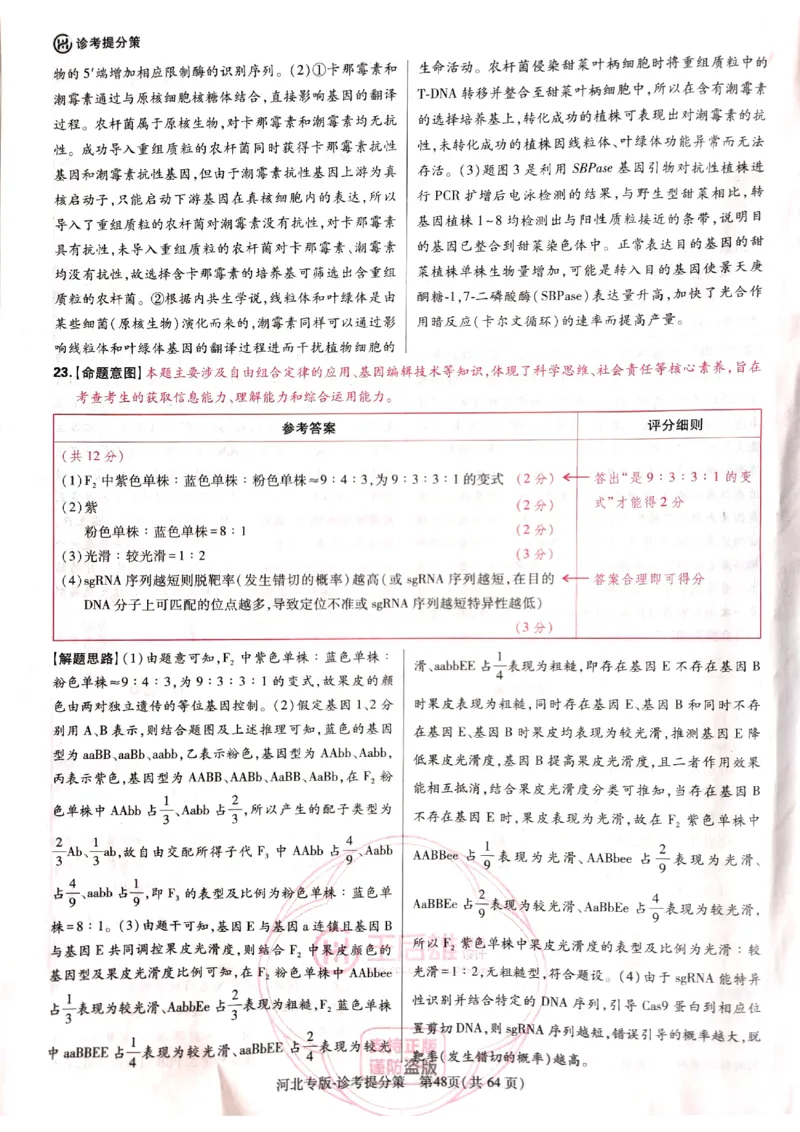 诊考提分策
物的5′端增加相应限制酶的识别序列。(2)①卡那霉素和
潮霉素通过与原核细胞核糖体结合,直接影响基因的翻译
过程。农杆菌属于原核生物,对卡那霉素和潮霉素均无抗
性。成功导入重组质粒的农杆菌同时获得卡那霉素抗性
基因和潮霉素抗性基因,但由于潮霉素抗性基因上游为真
核启动子,只能启动下游基因在真核细胞内的表达,所以
导入了重组质粒的农杆菌对潮霉素没有抗性,对卡那霉素
具有抗性,未导入重组质粒的农杆菌对卡那霉素、潮霉素
均没有抗性,故选择含卡那霉素的培养基可筛选出含重组
质粒的农杆菌。②根据内共生学说,线粒体和叶绿体是由
某些细菌(原核生物)演化而来的,潮霉素同样可以通过影
响线粒体和叶绿体基因的翻译过程进而干扰植物细胞的
生命活动。农杆菌侵染甜菜叶柄细胞时将重组质粒中的
T-DNA转移并整合至甜菜叶柄细胞中,所以在含有潮霉素
的选择培养基上,转化成功的植株可表现出对潮霉素的抗
性,未转化成功的植株因线粒体、叶绿体功能异常而无法
存活。(3)题图3是利用SBPase基因引物对抗性植株进
行PCR扩增后电泳检测的结果,与野生型甜菜相比,转
基因植株1~8均检测出与阳性质粒接近的条带,说明目
的基因已整合到甜菜染色体中。正常表达目的基因的甜
菜植株单株生物量增加,可能是转入目的基因使景天庚
酮糖-1,7-二磷酸酶(SBPase)表达量升高,加快了光合作
用暗反应(卡尔文循环)的速率而提高产量。
23.【命题意图】本题主要涉及自由组合定律的应用、基因编辑技术等知识,体现了科学思维、社会责任等核心素养,旨在
考查考生的获取信息能力、理解能力和综合运用能力。
参考答案 评分细则
(共12分)
(1)F₂中紫色单株:蓝色单株:粉色单株≈9:4:3,为9:3:3:1的变式 (2分) 答出“是9:3:3:1的变
式”才能得2分
(2)紫 (2分)
粉色单株:蓝色单株=8:1 (2分)
(3)光滑:较光滑=1:2 (3分)
(4)sgRNA序列越短则脱靶率(发生错切的概率)越高(或sgRNA序列越短,在目的 答案合理即可得分
DNA分子上可匹配的位点越多,导致定位不准或sgRNA序列越短特异性越低)
(3分)
【解题思路】(1)由题意可知,F₂中紫色单株:蓝色单株:
粉色单株≈9:4:3,为9:3:3:1的变式,故果皮的颜
色由两对独立遗传的等位基因控制。(2)假定基因1、2分
别用A、B表示,则结合题图及上述推理可知,蓝色的基因
型为aaBB、aaBb、aabb,乙表示粉色,基因型为AAbb、Aabb,
丙表示紫色,基因型为AABB、AABb、AaBB、AaBb,在F₂粉
色单株中AAbb占1/3、Aabb占2/3,所以产生的配子类型为
2/3Ab、1/3ab,故自由交配所得子代F₃中AAbb占4/9、Aabb
占4/9、aabb占1/9,即F₃的表型及比例为粉色单株:蓝色单
株=8:1。(3)由题干可知,基因E与基因a连锁且基因B
与基因E共同调控果皮光滑度,则结合F₂中果皮颜色的
基因型及果皮光滑度比例可知,在F₂粉色单株中AAbbee
占1/3表现为较光滑、AabbEe占2/3表现为粗糙,F₂蓝色单株
中aaBBEE占1/4表现为较光滑、aaBbEE占2/4表现为较光
滑、aabbEE占1/4表现为粗糙,即存在基因E不存在基因B
时果皮表现为粗糙,同时存在基因E、基因B和同时不存
在基因E、基因B时果皮均表现为较光滑,推测基因E降
低果皮光滑度,基因B提高果皮光滑度,且二者作用效果
能相互抵消,结合果皮光滑度分类可推知,当存在基因B
不存在基因E时,果皮表现为光滑,故在F₂紫色单株中
AABBee占1/9表现为光滑、AABbee占2/9表现为光滑、
AaBBEe占2/9表现为较光滑、AaBbEe占4/9表现为较光滑,
所以F₂紫色单株中果皮光滑度的表型及比例为光滑:较
光滑=1:2,无粗糙型,符合题设。(4)由于sgRNA能特异
性识别并结合特定的DNA序列,引导Cas9蛋白到相应位
置剪切DNA,则sgRNA序列越短,错误引导的概率越大,脱
靶率(发生错切的概率)越高。
王后雄
设计
特正版
谨防盗版
河北专版-诊考提分策 第48页(共64页)